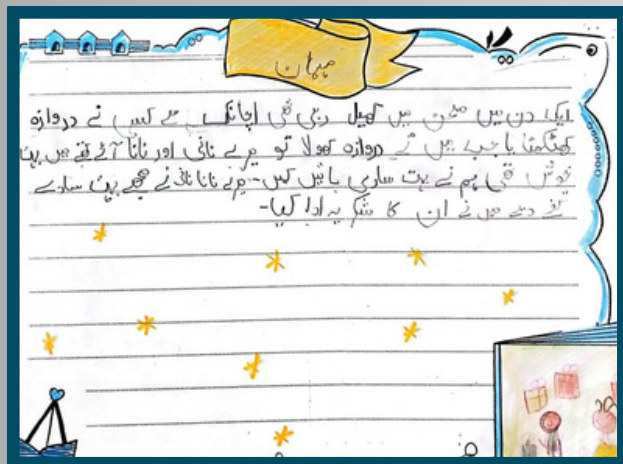 مہمان
ایک دن میں صحن میں کھیل رہی تھی اچانک سے کسی نے دروازہ
کھٹکھٹایا جب میں نے دروازہ کھولا تو میرے نانی اور نانا آئے تھے میں بہت
خوش تھی ہم نے بہت ساری باتیں کیں۔ میرے نانا نانی نے مجھے بہت سارے
تحفے دیے میں نے ان کا شکریہ ادا کیا۔